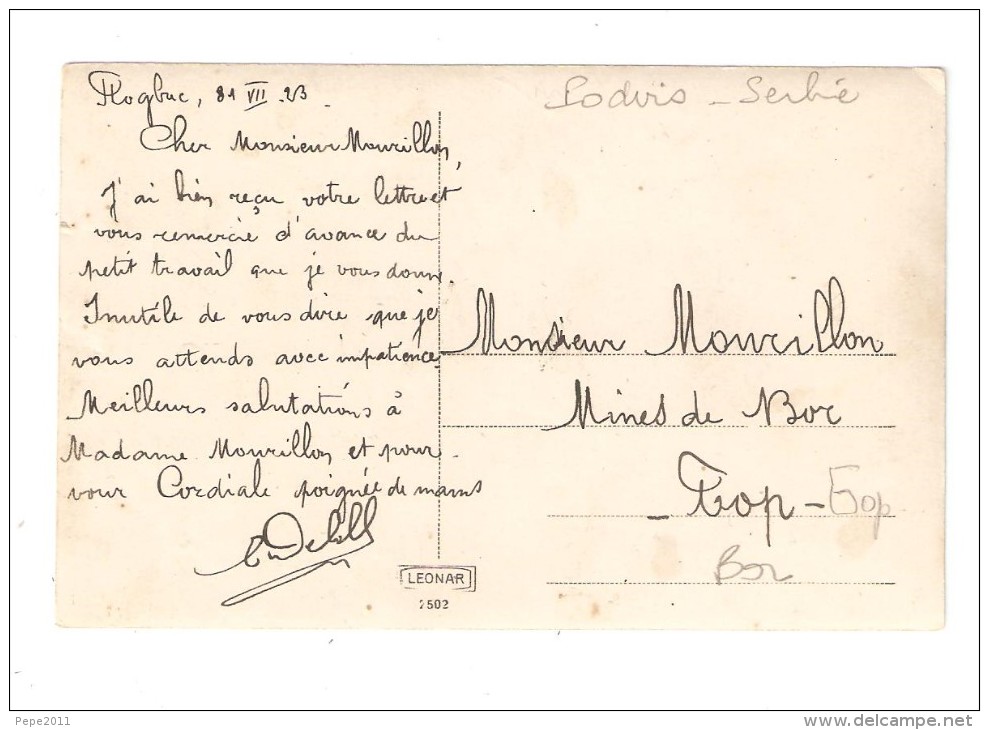 31 VII 23.
Cher Monsieur Mourillon,
J'ai bien reçu votre lettre et
vous remercie d'avance du
petit travail que je vous donne.
Inutile de vous dire que je
vous attends avec impatience
Meilleurs salutations à
Madame Mourillon et pour
vous Cordiale poignée de mains
LEONAR
2502
Podvis - Serbie
Monsieur Mourillon
Mines de Bor
- Бор - Бор
Bor
Pepe2011
www.delcampe.net